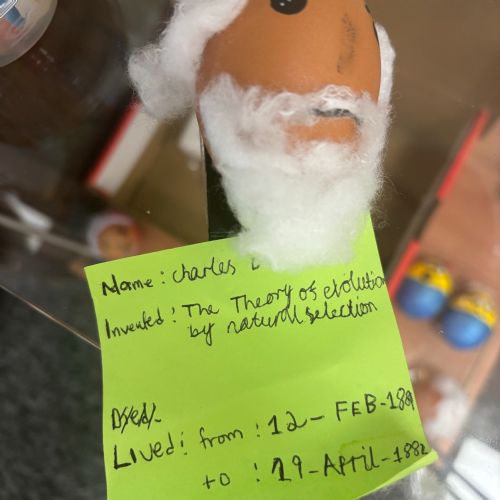 Name: Charles
Invented: The Theory of evolution
by natural selection
Lived: from: 12-FEB-1809
to: 19-April-1882